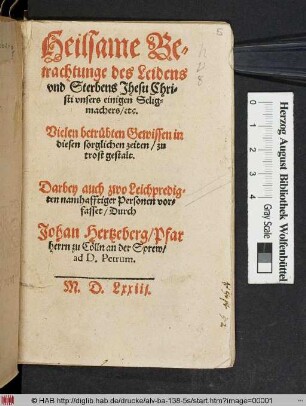 Heilsame Be-
trachtunge des Leidens
vnd Sterbens Jhesu Chri-
sti vnsers einigen Selig-
machers/etc.
Vielen betrübten Gewissen in
diesen sorglichen zeiten/zu
trost gestalt.
Darbey auch zwo Leichpredig-
ten namhafftiger Personen vor-
fasset/Durch
Johan Hertzeberg/Pfar
herrn zu Cölln an der Sprew/
ad D. Petrum.
M. D. Lxxiii.
5
Herzog August Bibliothek Wolfenbüttel
Gray Scale
© HAB http://diglib.hab.de/drucke/alv-ba-138-5s/start.htm?image=00001